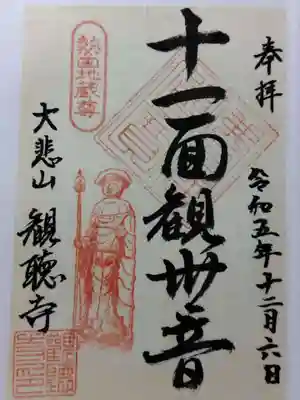 奉拝
令和五年十二月六日
十一面観世音
熱田地蔵尊
大悲山
観聴寺